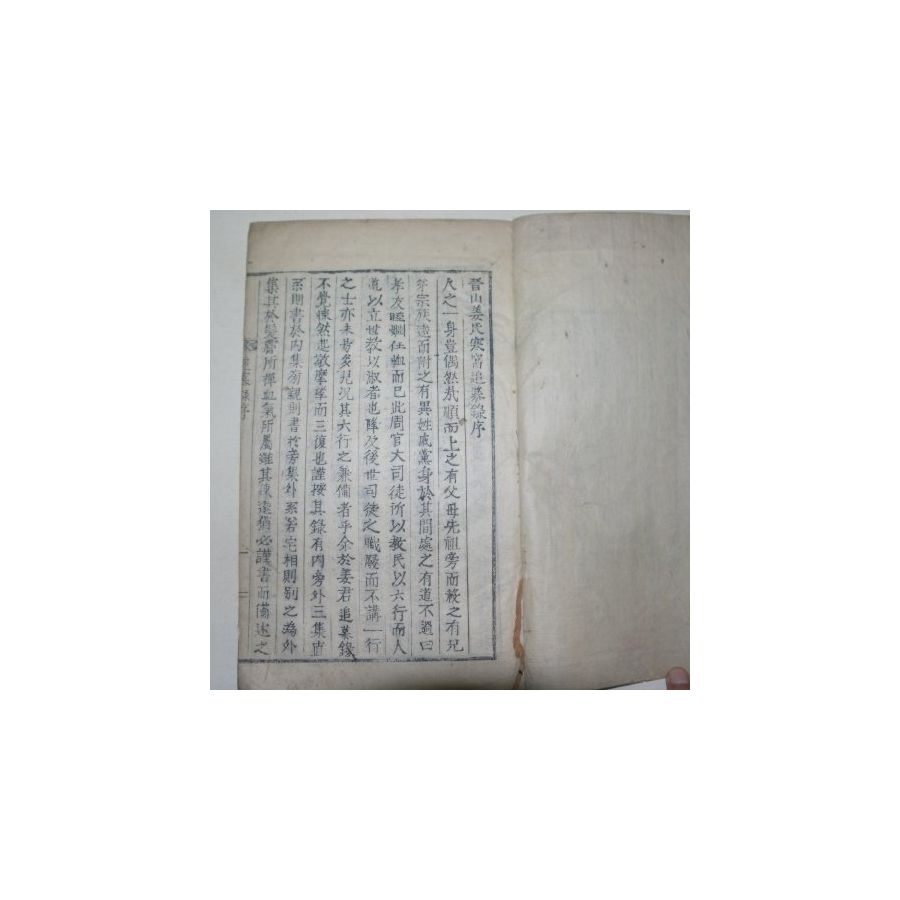 晉山姜氏寒窩追慕錄序
人之一身豈偶然哉順而上之有父母先祖旁而殺之有兄
弟宗族遠而附之有異姓戚黨身於其間處之有道不過曰
孝友睦婣任恤而已此周官大司徒所以教民以六行而人
道以立世教以淑者也降及後世司徒之職廢而不講一行
之士亦未易多見況其六行之兼備者乎余於姜君追慕錄
不覺悚然起敬摩挲而三復也謹按其錄有內旁外三集直
系則書於內集旁親則書於旁集外系若宅相則別之為外
集其於髮膚所撣血氣所屬雖其疎遠猶必謹書而備述之
追慕錄序
一